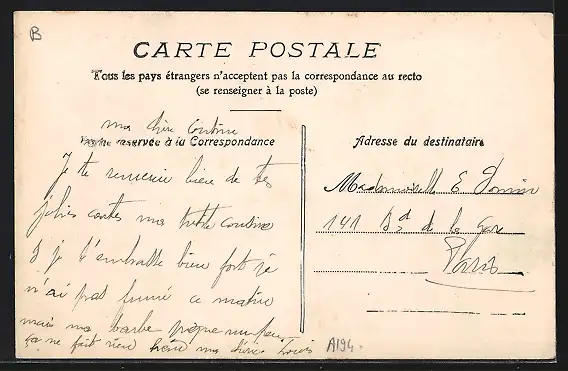 B
CARTE POSTALE
Tous les pays étrangers n'acceptent pas la correspondance au recto
(se renseigner à la poste)
ma chère Cousine
Partie réservée à la Correspondance
Adresse du destinataire
Je te remercie bien de tes
jolies cartes ma petite cousine
je t'embrasse bien fort je
n'ai pas fumé ce matin
mais ma barbe pique un peu
ça ne fait rien ma chère Louis
Mademoiselle E.
141 Bd de la Gare
Paris
A194.